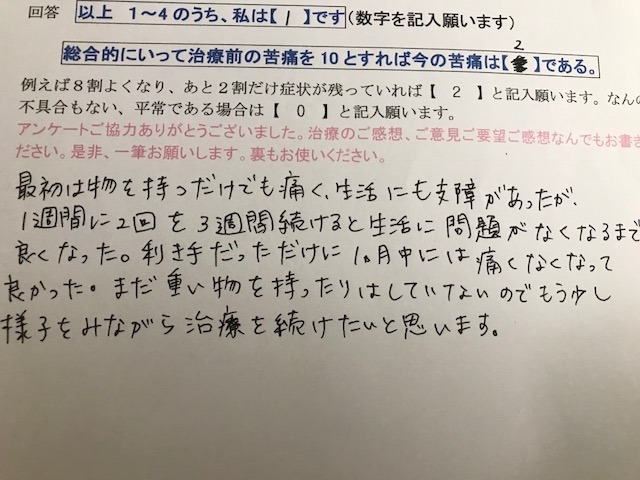 回答 以上 1～4のうち、私は【 1 】です(数字を記入願います)
2
総合的にいって治療前の苦痛を10とすれば今の苦痛は【 】である。
例えば８割よくなり、あと２割だけ症状が残っていれば【 2 】と記入願います。なんの
不具合もない、平常である場合は【 0 】と記入願います。
アンケートご協力ありがとうございました。治療のご感想、ご意見ご要望ご感想なんでもお書き
ださい。是非、一筆お願いします。裏もお使いください。
最初は物を持つだけでも痛く、生活にも支障があったが、
1週間に2回を3週間続けると生活に問題がなくなるまで
良くなった。利き手だっただけに1ヵ月中には痛くなくなって
良かった。まだ重い物を持ったりはしていてないのでもう少し
様子をみながら治療を続けたいと思います。